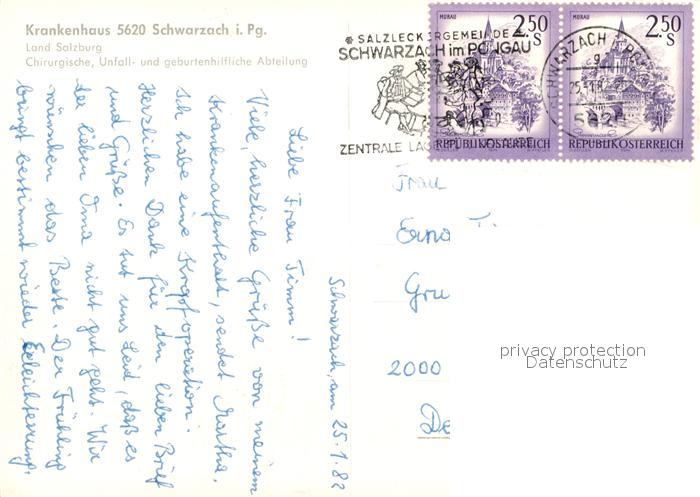 Krankenhaus 5620 Schwarzach i. Pg.
Land Salzburg
Chirurgische, Unfall- und geburtenhilfliche Abteilung
* SALZLECKERGEMEINDE *
SCHWARZACH im PONGAU
ZENTRALE LAGE
SCHWARZACH
25.-1.8
5620
MURAU
2.50
S
REPUBLIK ÖSTERREICH
MURAU
2.50
S
REPUBLIK ÖSTERREICH
Schwarzach, am 25.1.82
Liebe Frau Timm!
Viele, herzliche Grüße von meinem
Krankenaufenthalt, sendet Martha.
Ich habe eine Kropfoperation.
Herzlichen Dank für den lieben Brief
und Grüße. Es tut uns Leid, daß es
der lieben Oma nicht gut geht. Wir
wünschen das Beste. Der Frühling
bringt bestimmt wieder Erleichterung.
Frau
Erna T.
Gru
2000
De
privacy protection
Datenschutz